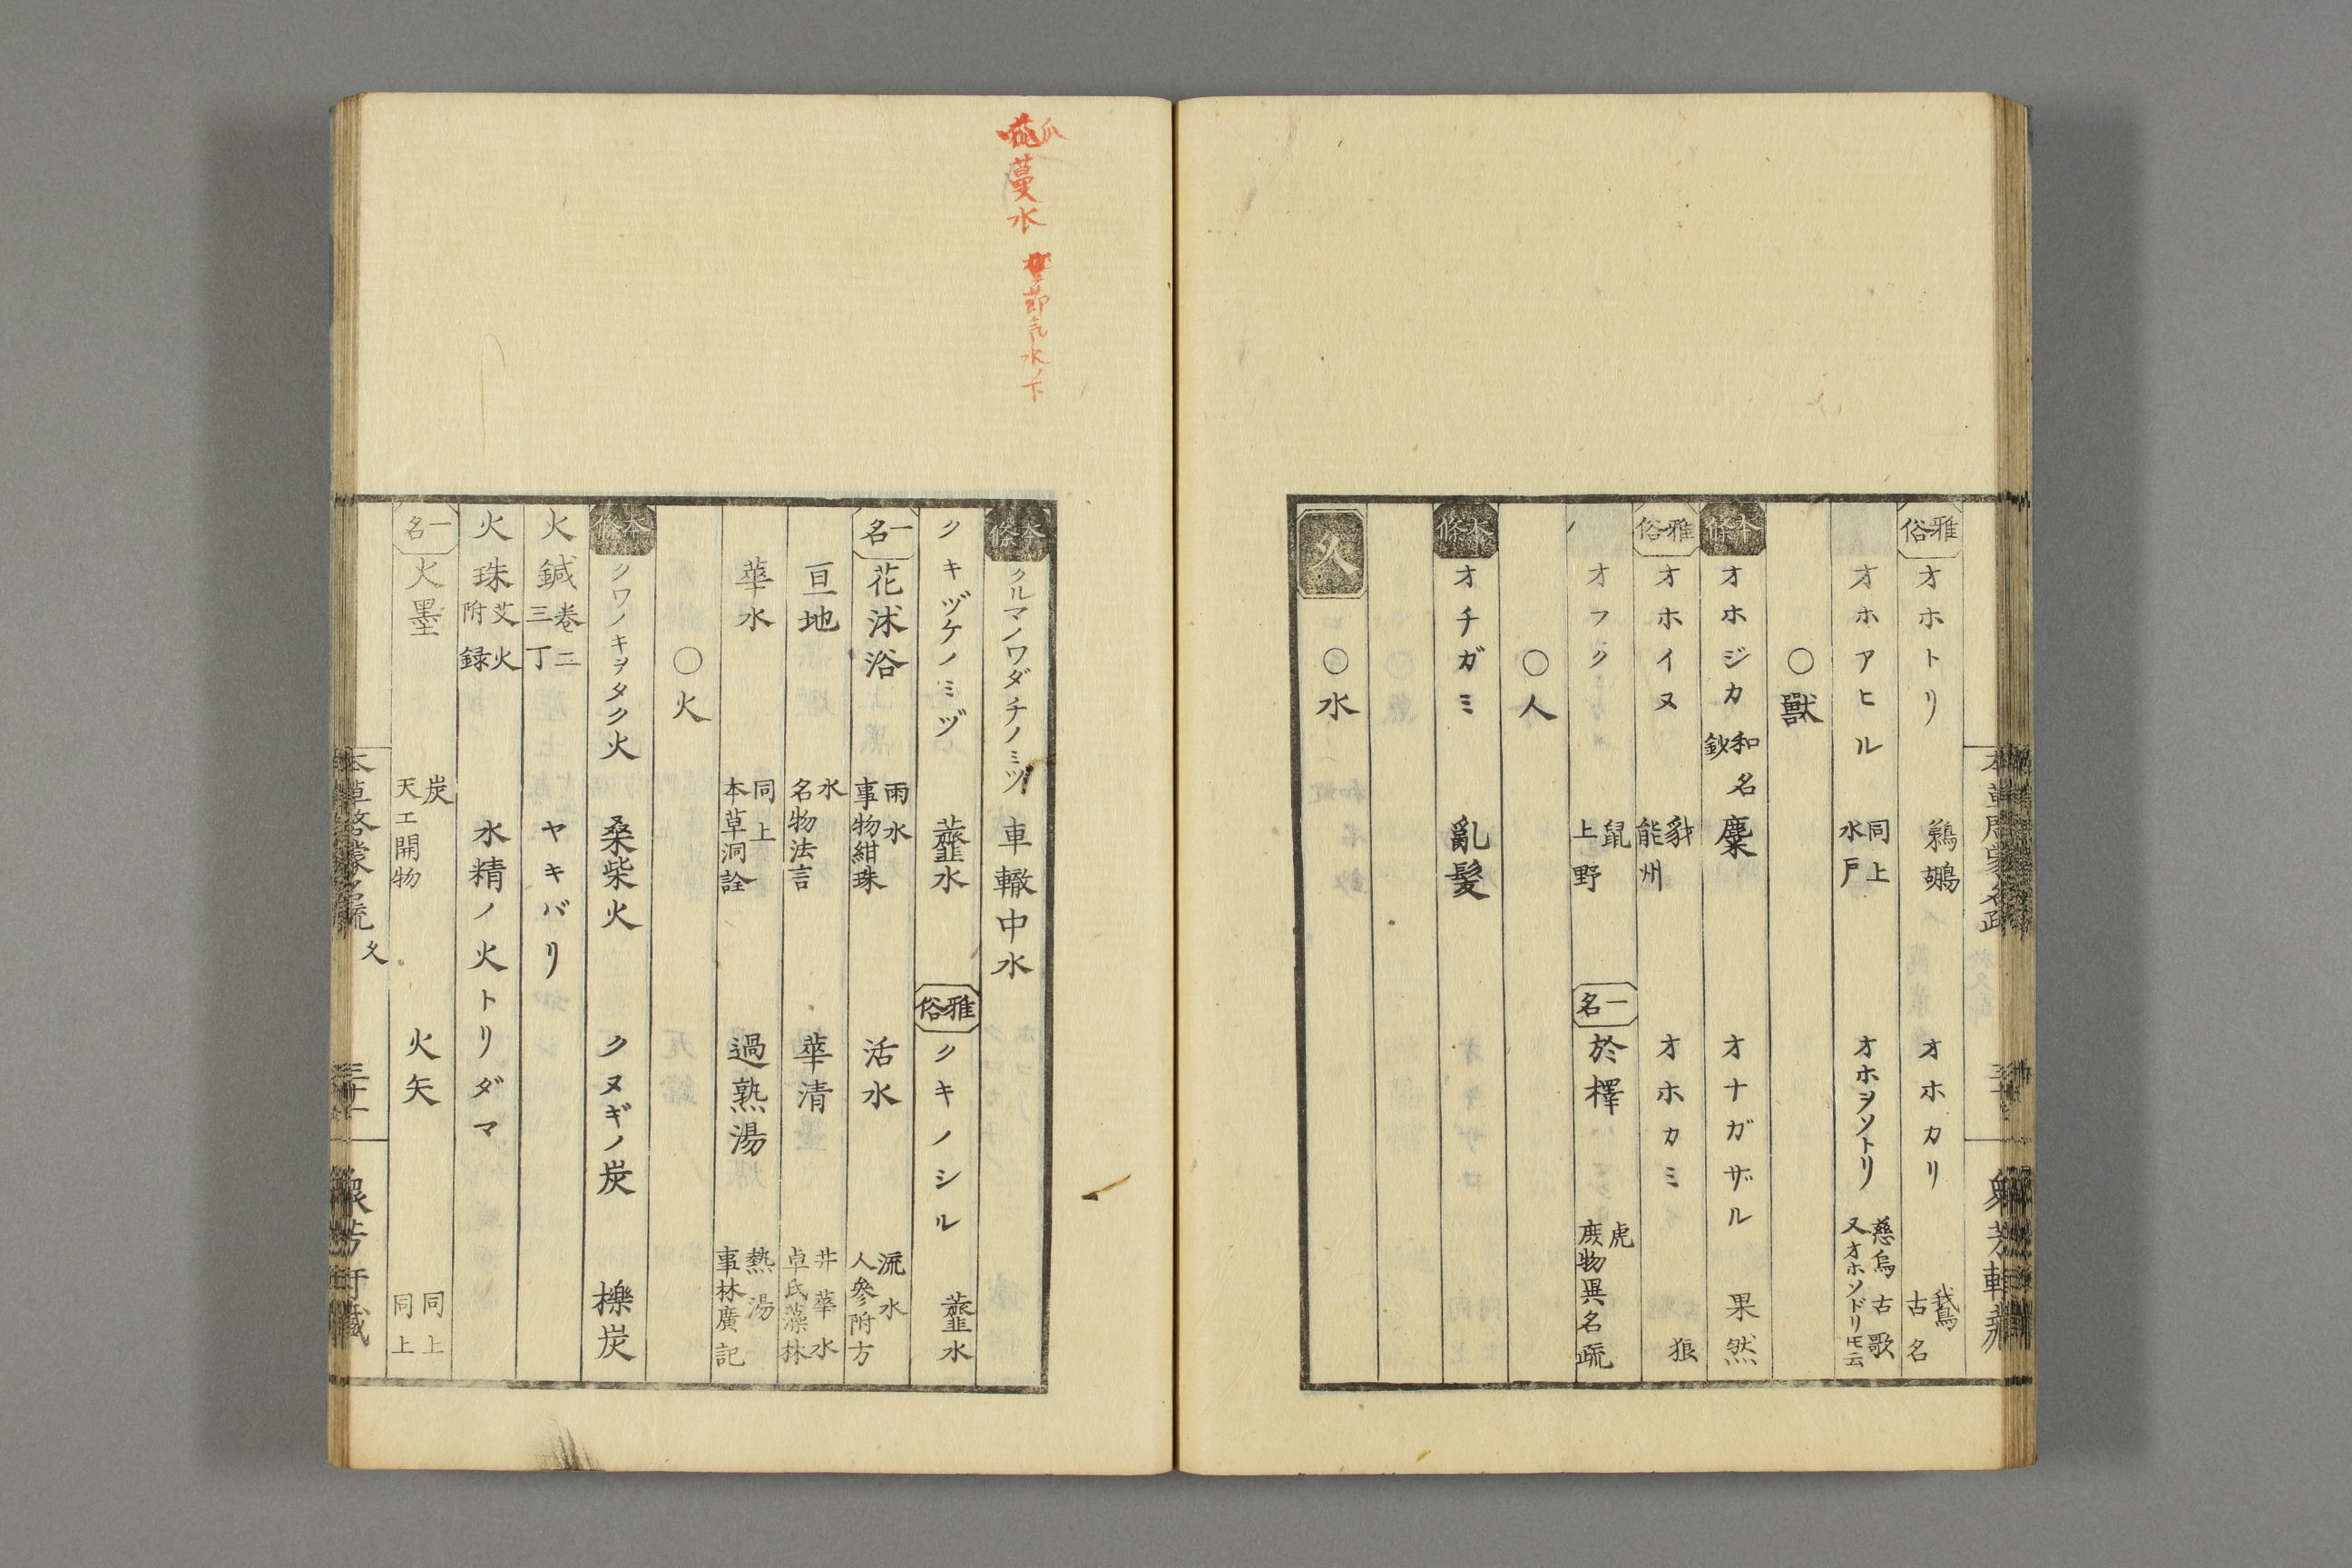 雅俗 オホトリ 鵜鶘 オホカリ 鵞 古名
オホアヒル 同上 水戸 オホヲソトリ 慈烏 古歌 又オホソドリトモ云
○獸
本條 オホジカ 和名鈔 麋 オナガザル 果然
雅俗 オホイヌ 豺 能州 オホカミ 狼
オフク 鼠 上野 一名 於檡 虎 庶物異名疏
○人
本條 オチガミ 亂髮
○水
本條 クルマノワダチノミヅ 車轍中水
クキヅケノミヅ 虀水 雅俗 クキノシル 虀水
一名 花沭浴 雨水 事物紺珠 活水 流水 人參附方
亘地 水 名物法言 華清 井華水 卓氏藻林
華水 同上 本草洞詮 過熟湯 熱湯 事林廣記
○火
本條 クワノキヲタク火 桑柴火 クヌギノ炭 櫟炭
火鍼 卷二 三丁 ヤキバリ
火珠 艾火附録 水精ノ火トリダマ
一名 火墨 炭 天工開物 火矢 同上 同上
本草啓蒙名疏 三十一
蔓水 節気水ノ下